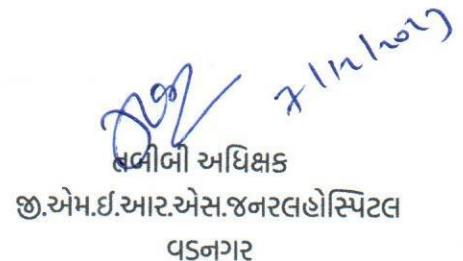 7/12/2023
તબીબી અધિક્ષક
જી.એમ.ઈ.આર.એસ.જનરલહોસ્પિટલ
વડનગર